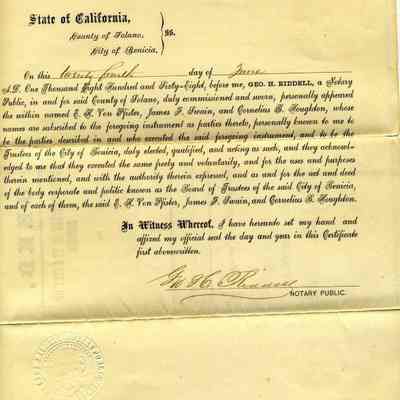 State of California,
County of Solano, } ss.
City of Benicia,
On this twenty fourth day of June
A.D. One Thousand Eight Hundred and Sixty-Eight, before me, GEO. H. RIDDELL, a Notary
Public, in and for said County of Solano, duly commissioned and sworn, personally appeared
the within named E. H. Von Pfister, James F. Swain, and Cornelius B. Houghdon, whose
names are subscribed to the foregoing instrument as parties thereto, personally known to me to
be the parties described in and who executed the said foregoing instrument, and to be the
Trustees of the City of Benicia, duly elected, qualified, and acting as such, and they acknowl-
edged to me that they executed the same freely and voluntarily, and for the uses and purposes
therein mentioned, and with the authority therein expressed, and as and for the act and deed
of the body corporate and politic known as the Board of Trustees of the said City of Benicia,
and of each of them, the said E. H. Von Pfister, James F. Swain, and Cornelius B. Houghdon.
In Witness Whereof, I have hereunto set my hand and
affixed my official seal the day and year in this Certificate
first above written.
Geo H. Riddell
NOTARY PUBLIC.